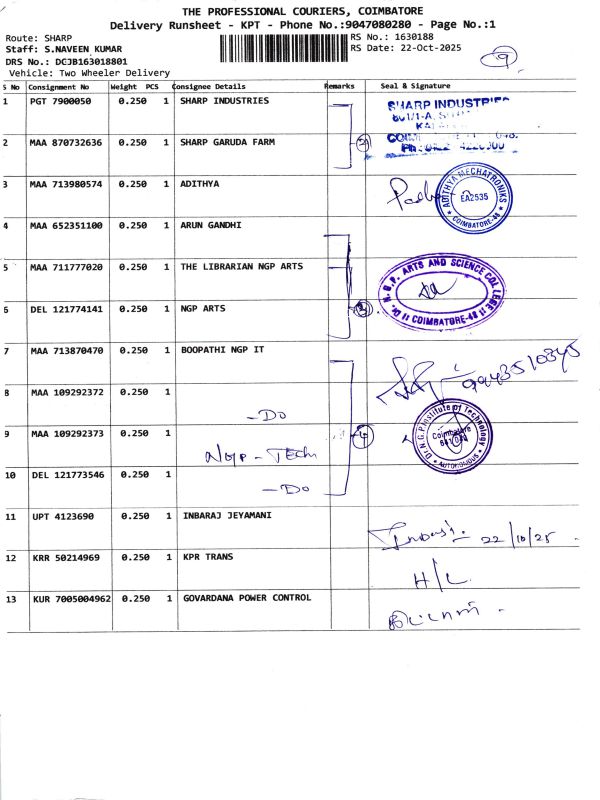 THE PROFESSIONAL COURIERS, COIMBATORE
Delivery Runsheet - KPT - Phone No.:9047080280 - Page No.:1
Route: SHARP
RS No.: 1630188
Staff: S.NAVEEN KUMAR
RS Date: 22-Oct-2025
9
DRS No.: DCJB163018801
Vehicle: Two Wheeler Delivery
S No Consignment No Weight PCS Consignee Details Remarks Seal & Signature
1 PGT 7900050 0.250 1 SHARP INDUSTRIES
SHARP INDUSTRIES
2 MAA 870732636 0.250 1 SHARP GARUDA FARM 2
3 MAA 713980574 0.250 1 ADITHYA
ADITHYA MECHATRONIKS
EA2535
COIMBATORE-48
4 MAA 652351100 0.250 1 ARUN GANDHI
5 MAA 711777020 0.250 1 THE LIBRARIAN NGP ARTS
Dr. N. G.P. ARTS AND SCIENCE COLLEGE
COIMBATORE-48
6 DEL 121774141 0.250 1 NGP ARTS 3
7 MAA 713870470 0.250 1 BOOPATHI NGP IT
9943510345
8 MAA 109292372 0.250 1 -Do
Dr. N.G.P Institute of Technology
Coimbatore
641 048
AUTONOMOUS
9 MAA 109292373 0.250 1 NGP - Tech 4
10 DEL 121773546 0.250 1 -Do
11 UPT 4123690 0.250 1 INBARAJ JEYAMANI
22/10/25.
12 KRR 50214969 0.250 1 KPR TRANS
H/L
13 KUR 7005004962 0.250 1 GOVARDANA POWER CONTROL